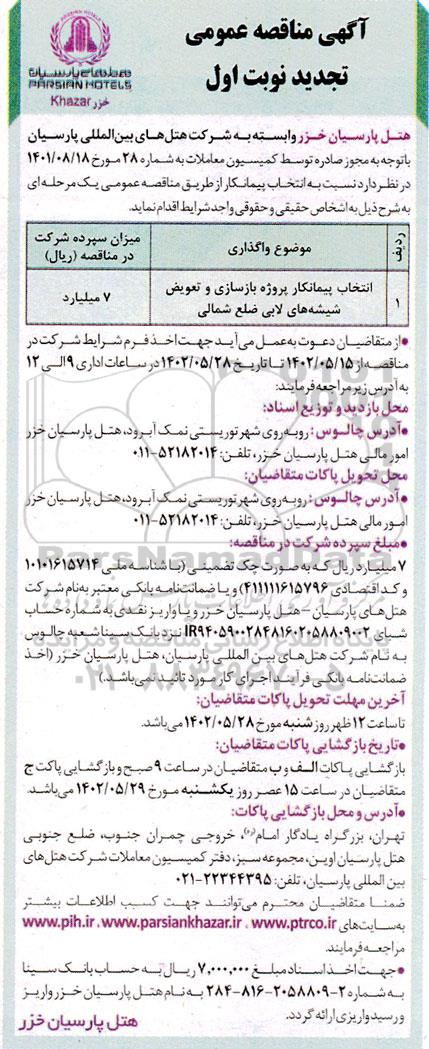 آگهی مناقصه عمومی
تجدید نوبت اول
PARSIAN HOTELS
هتلهای پارسیان
PARSIAN HOTELS
خزر Khazar
هتل پارسیان خزر وابسته به شرکت هتل‌های بین‌المللی پارسیان
با توجه به مجوز صادره توسط کمیسیون معاملات به شماره ۲۸ مورخ ۱۴۰۱/۰۸/۱۸
در نظر دارد نسبت به انتخاب پیمانکار از طریق مناقصه عمومی یک مرحله‌ای
به شرح ذیل به اشخاص حقیقی و حقوقی واجد شرایط اقدام نماید.
ردیف
موضوع واگذاری
میزان سپرده شرکت
در مناقصه (ریال)
۱
انتخاب پیمانکار پروژه بازسازی و تعویض
شیشه‌های لابی ضلع شمالی
۷ میلیارد
•از متقاضیان دعوت به عمل می‌آید جهت اخذ فرم شرایط شرکت در
مناقصه از ۱۴۰۲/۰۵/۱۵ تا تاریخ ۱۴۰۲/۰۵/۲۸ در ساعات اداری ۹ الی ۱۲
به آدرس زیر مراجعه فرمایند:
محل بازدید و توزیع اسناد:
•آدرس چالوس: روبه‌روی شهر توریستی نمک آبرود، هتل پارسیان خزر
امور مالی هتل پارسیان خزر، تلفن: ۵۲۱۸۲۰۱۴-۰۱۱
محل تحویل پاکات متقاضیان:
•آدرس چالوس: روبه‌روی شهر توریستی نمک آبرود، هتل پارسیان خزر
امور مالی هتل پارسیان خزر، تلفن: ۵۲۱۸۲۰۱۴-۰۱۱
•مبلغ سپرده شرکت در مناقصه:
۷ میلیارد ریال که به صورت چک تضمینی (با شناسه ملی ۱۰۱۰۱۶۱۵۷۱۴
و کد اقتصادی ۴۱۱۱۱۱۶۱۵۷۹۶) و یا ضمانت‌نامه بانکی معتبر به نام شرکت
هتل‌های پارسیان – هتل پارسیان خزر و یا واریز نقدی به شماره حساب
شبای IR۹۴۰۵۹۰۰۲۸۴۸۱۶۰۲۰۵۸۸۰۹۰۰۲ نزد بانک سینا شعبه چالوس
به نام شرکت هتل‌های بین المللی پارسیان، هتل پارسیان خزر (اخذ
ضمانت‌نامه بانکی فرآیند اجرای کار مورد تائید نمی‌باشد.)
آخرین مهلت تحویل پاکات متقاضیان:
تا ساعت ۱۲ ظهر روز شنبه مورخ ۱۴۰۲/۰۵/۲۸ می‌باشد.
•تاریخ بازگشایی پاکات متقاضیان:
بازگشایی پاکات الف و ب متقاضیان در ساعت ۹ صبح و بازگشایی پاکت ج
متقاضیان در ساعت ۱۵ عصر روز یکشنبه مورخ ۱۴۰۲/۰۵/۲۹ می‌باشد.
•آدرس و محل بازگشایی پاکات:
تهران، بزرگراه یادگار امام(ره)، خروجی چمران جنوب، ضلع جنوبی
هتل پارسیان اوین، مجموعه سبز، دفتر کمیسیون معاملات شرکت هتل‌های
بین المللی پارسیان، تلفن: ۲۲۳۴۴۳۹۵-۰۲۱
ضمنا متقاضیان محترم می‌توانند جهت کسب اطلاعات بیشتر
به سایت‌های www.pih.ir ، www.parsiankhazar.ir ، www.ptrco.ir
مراجعه فرمایند.
•جهت اخذ اسناد مبلغ ۷,۰۰۰,۰۰۰ ریال به حساب بانک سینا
به شماره ۲-۲۰۵۸۸۰۹-۸۱۶-۲۸۴ به نام هتل پارسیان خزر واریز
و رسید واریزی ارائه گردد.
هتل پارسیان خزر
ParsNamadData
۰۲۱-۸۸۳۴۹۶۷۰-۵